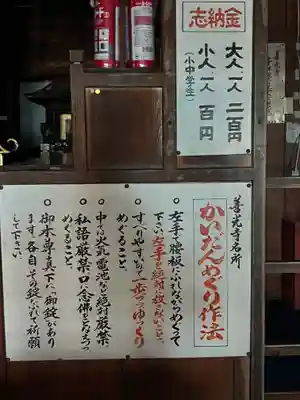 志納金
大人一人 二百円
小人一人 百円
(小中学生)
善光寺名所
かいだんめぐり作法
左手で腰板にふれながらめぐって
下さい。左手を絶対に放さないこと。
すべりやすいので一歩づつゆっくり
めぐること。
中では火気、電池など絶対厳禁
私語厳禁、口に念佛をとなえつつ
めぐること。
御本尊の真下に御錠があり
ます。各自、その錠にふれて祈願
して下さい。